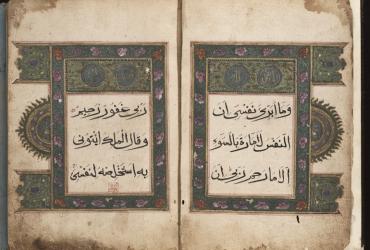 وما ابرئ نفسي ان
النفس لامارة بالسوء
الا ما رحم ربي ان
ربي غفور رحيم
وقال الملك ائتوني
به استخلصه لنفسي